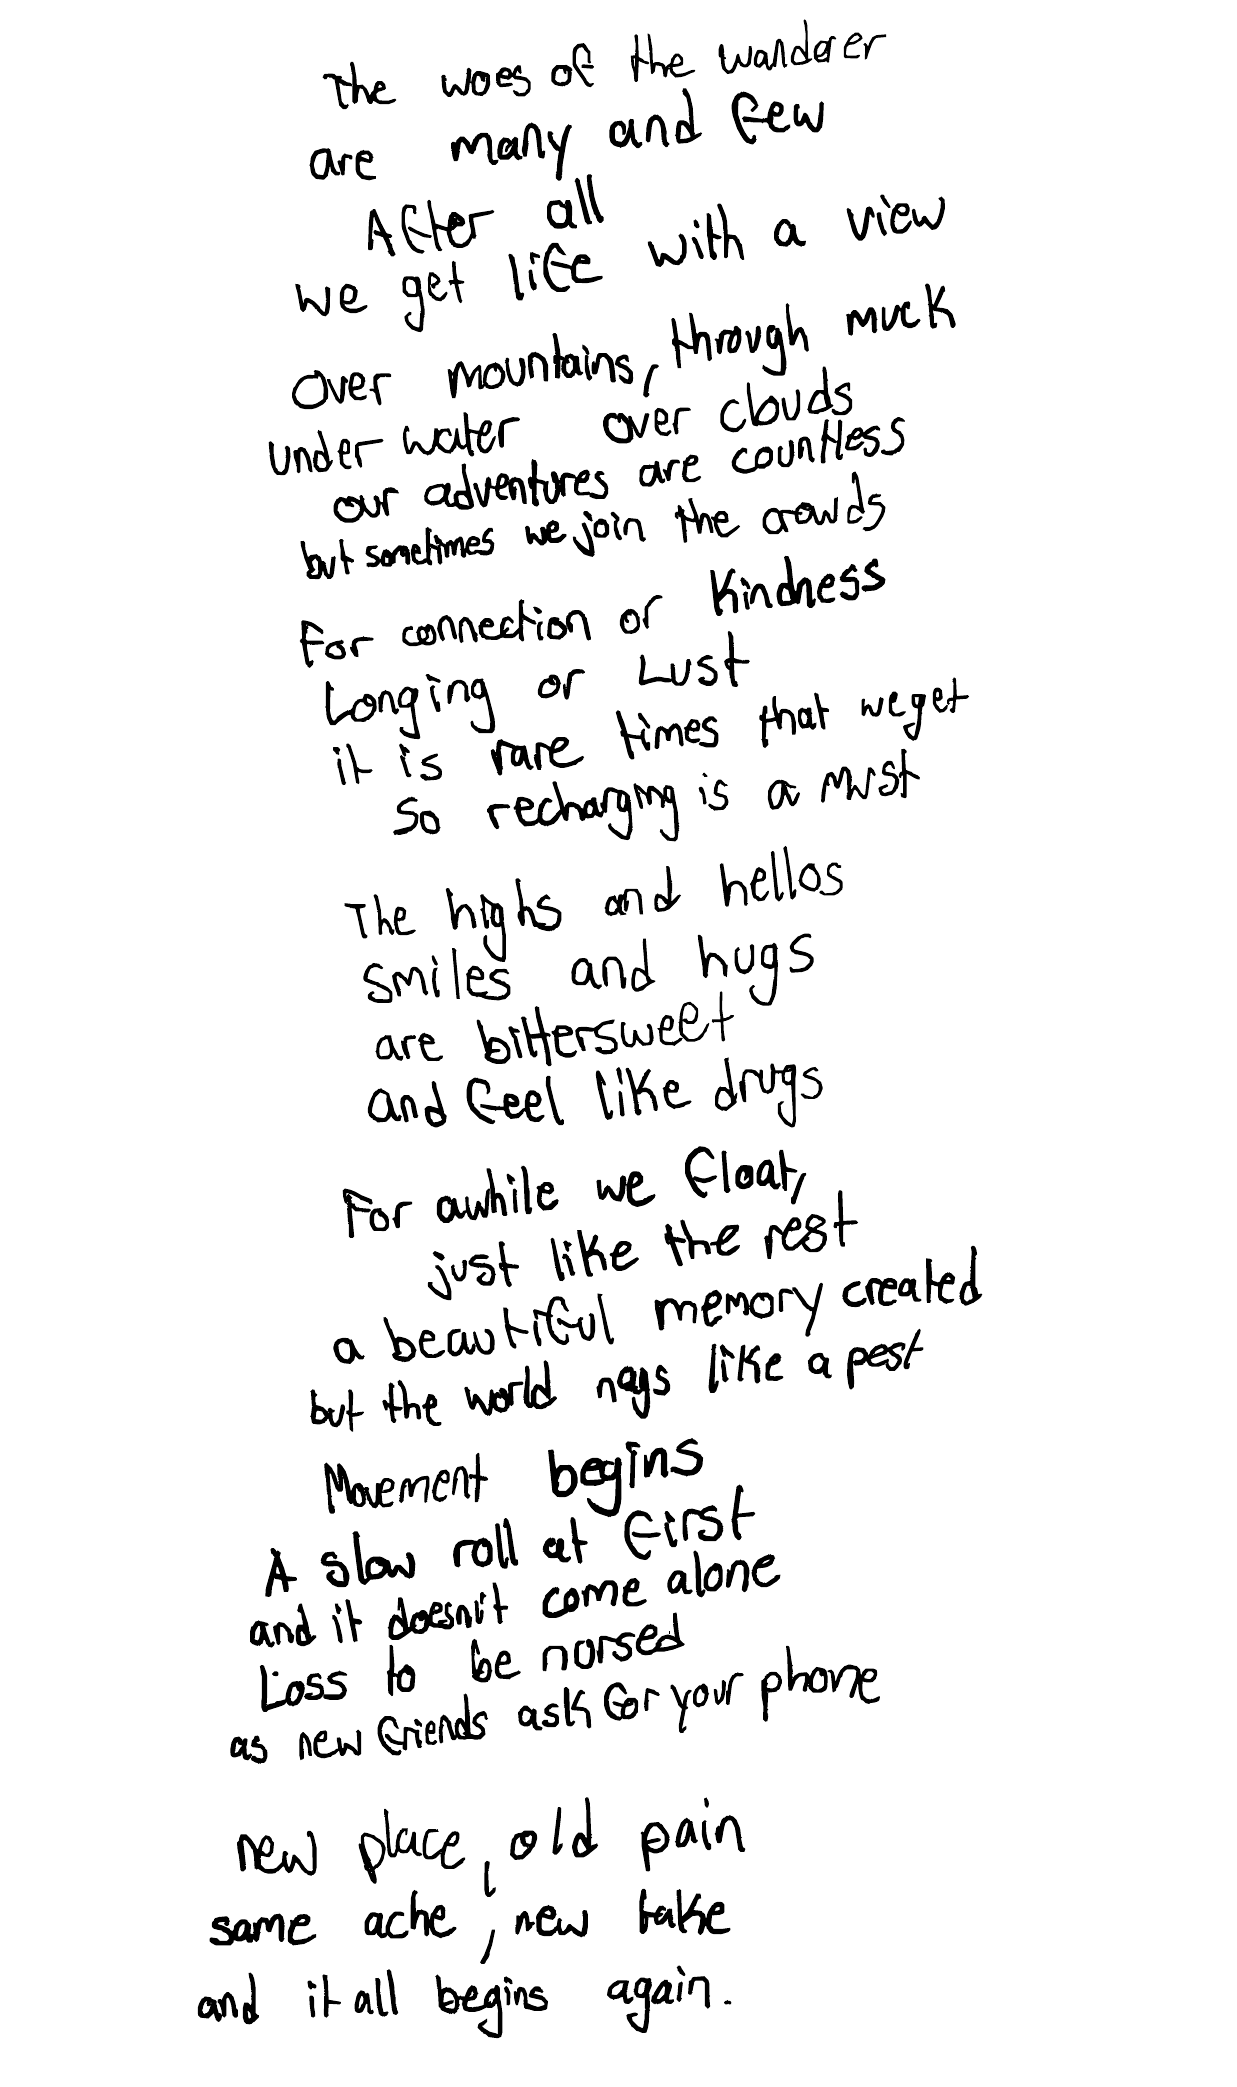 The woes of the wanderer
are many and few
After all
we get life with a view
Over mountains, through muck
under water over clouds
our adventures are countless
but sometimes we join the crowds
For connection or kindness
Longing or Lust
it is rare times that we get
so recharging is a must
The highs and hellos
smiles and hugs
are bittersweet
and feel like drugs
For awhile we float,
just like the rest
a beautiful memory created
but the world nags like a pest
Movement begins
A slow roll at first
and it doesn't come alone
Loss to be norsed
as new friends ask for your phone
new place, old pain
same ache, new take
and it all begins again.